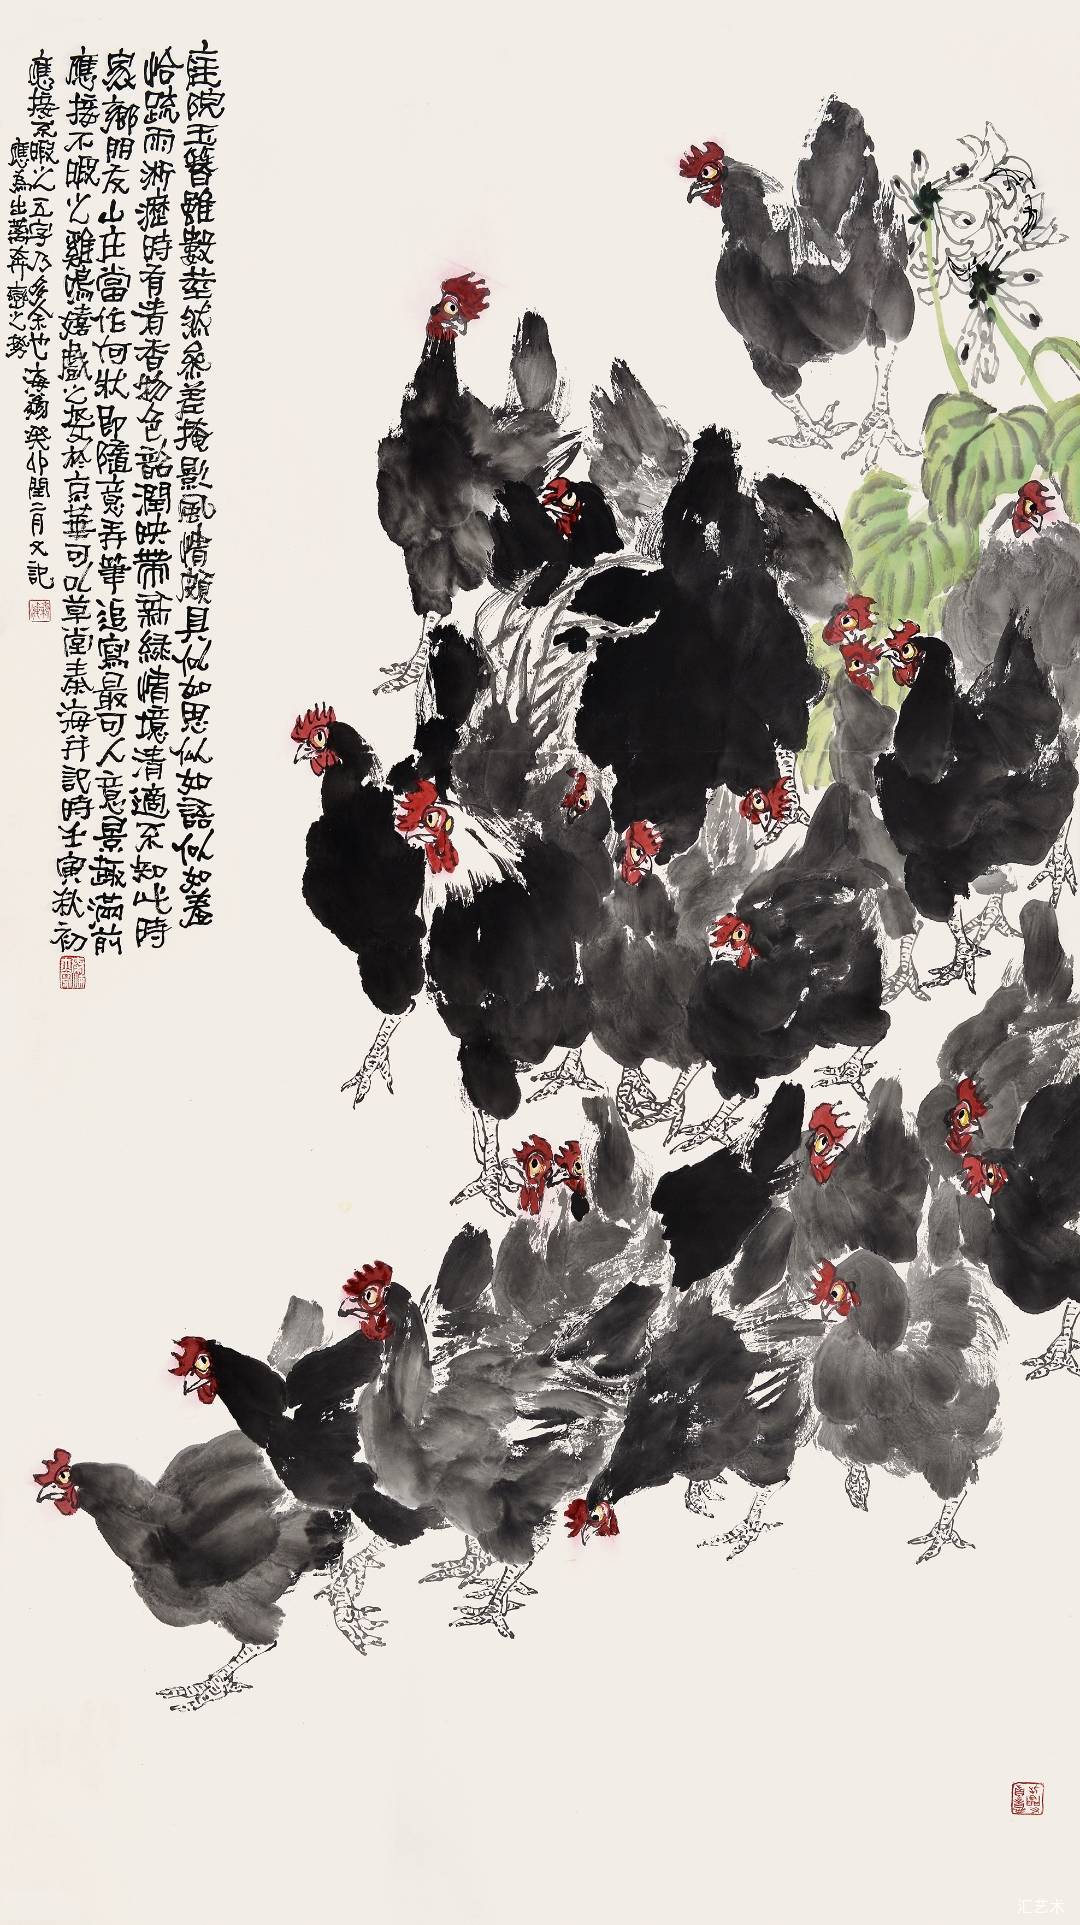 庭院玉簪雖數莖然參差掩影風情頗具似如思似如語似如羞
恰疏雨淅瀝時有清香物色韶潤映帶新綠情境清適不知此時
家鄉朋友山庄當作何狀即隨意弄筆追寫最可人意景趣滿前
應接不暇之雞鳴嬉戲之 於京華可以草堂秦海并記時壬寅秋初
應接不暇之五字乃多余也 海翁癸卯閏二月又記
應為出蕎奔巒之勢
汇艺术